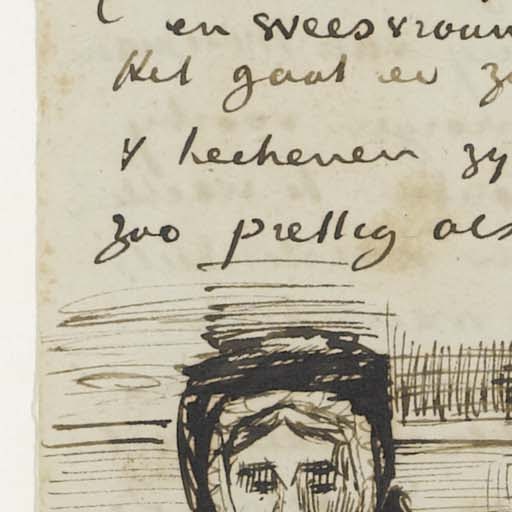 en weesvrouw
Het gaat er zo
& teekenen zy
zoo prettig als